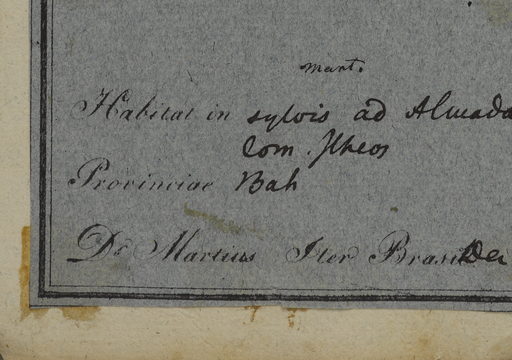 mart.
Habitat in sylvis ad Almada
Com. Ilheos
Provinciae Bah
Dr Martius Iter Brasil